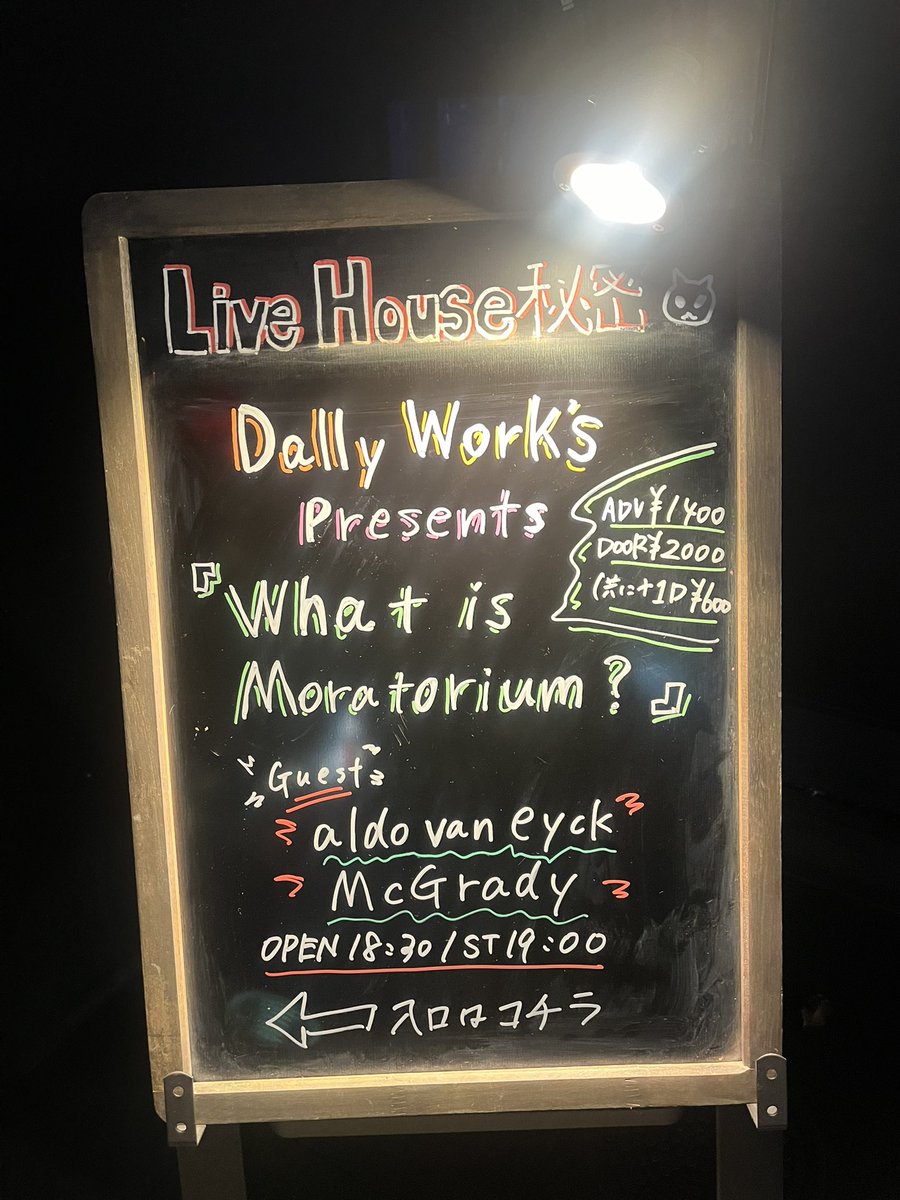 Live House秘密
Dally Work's
Presents
ADV¥1400
DOOR¥2000
(共に+1D¥600
『What is
Moratorium?』
Guest
aldo van eyck
McGrady
OPEN18:30/ST19:00
入口はコチラ